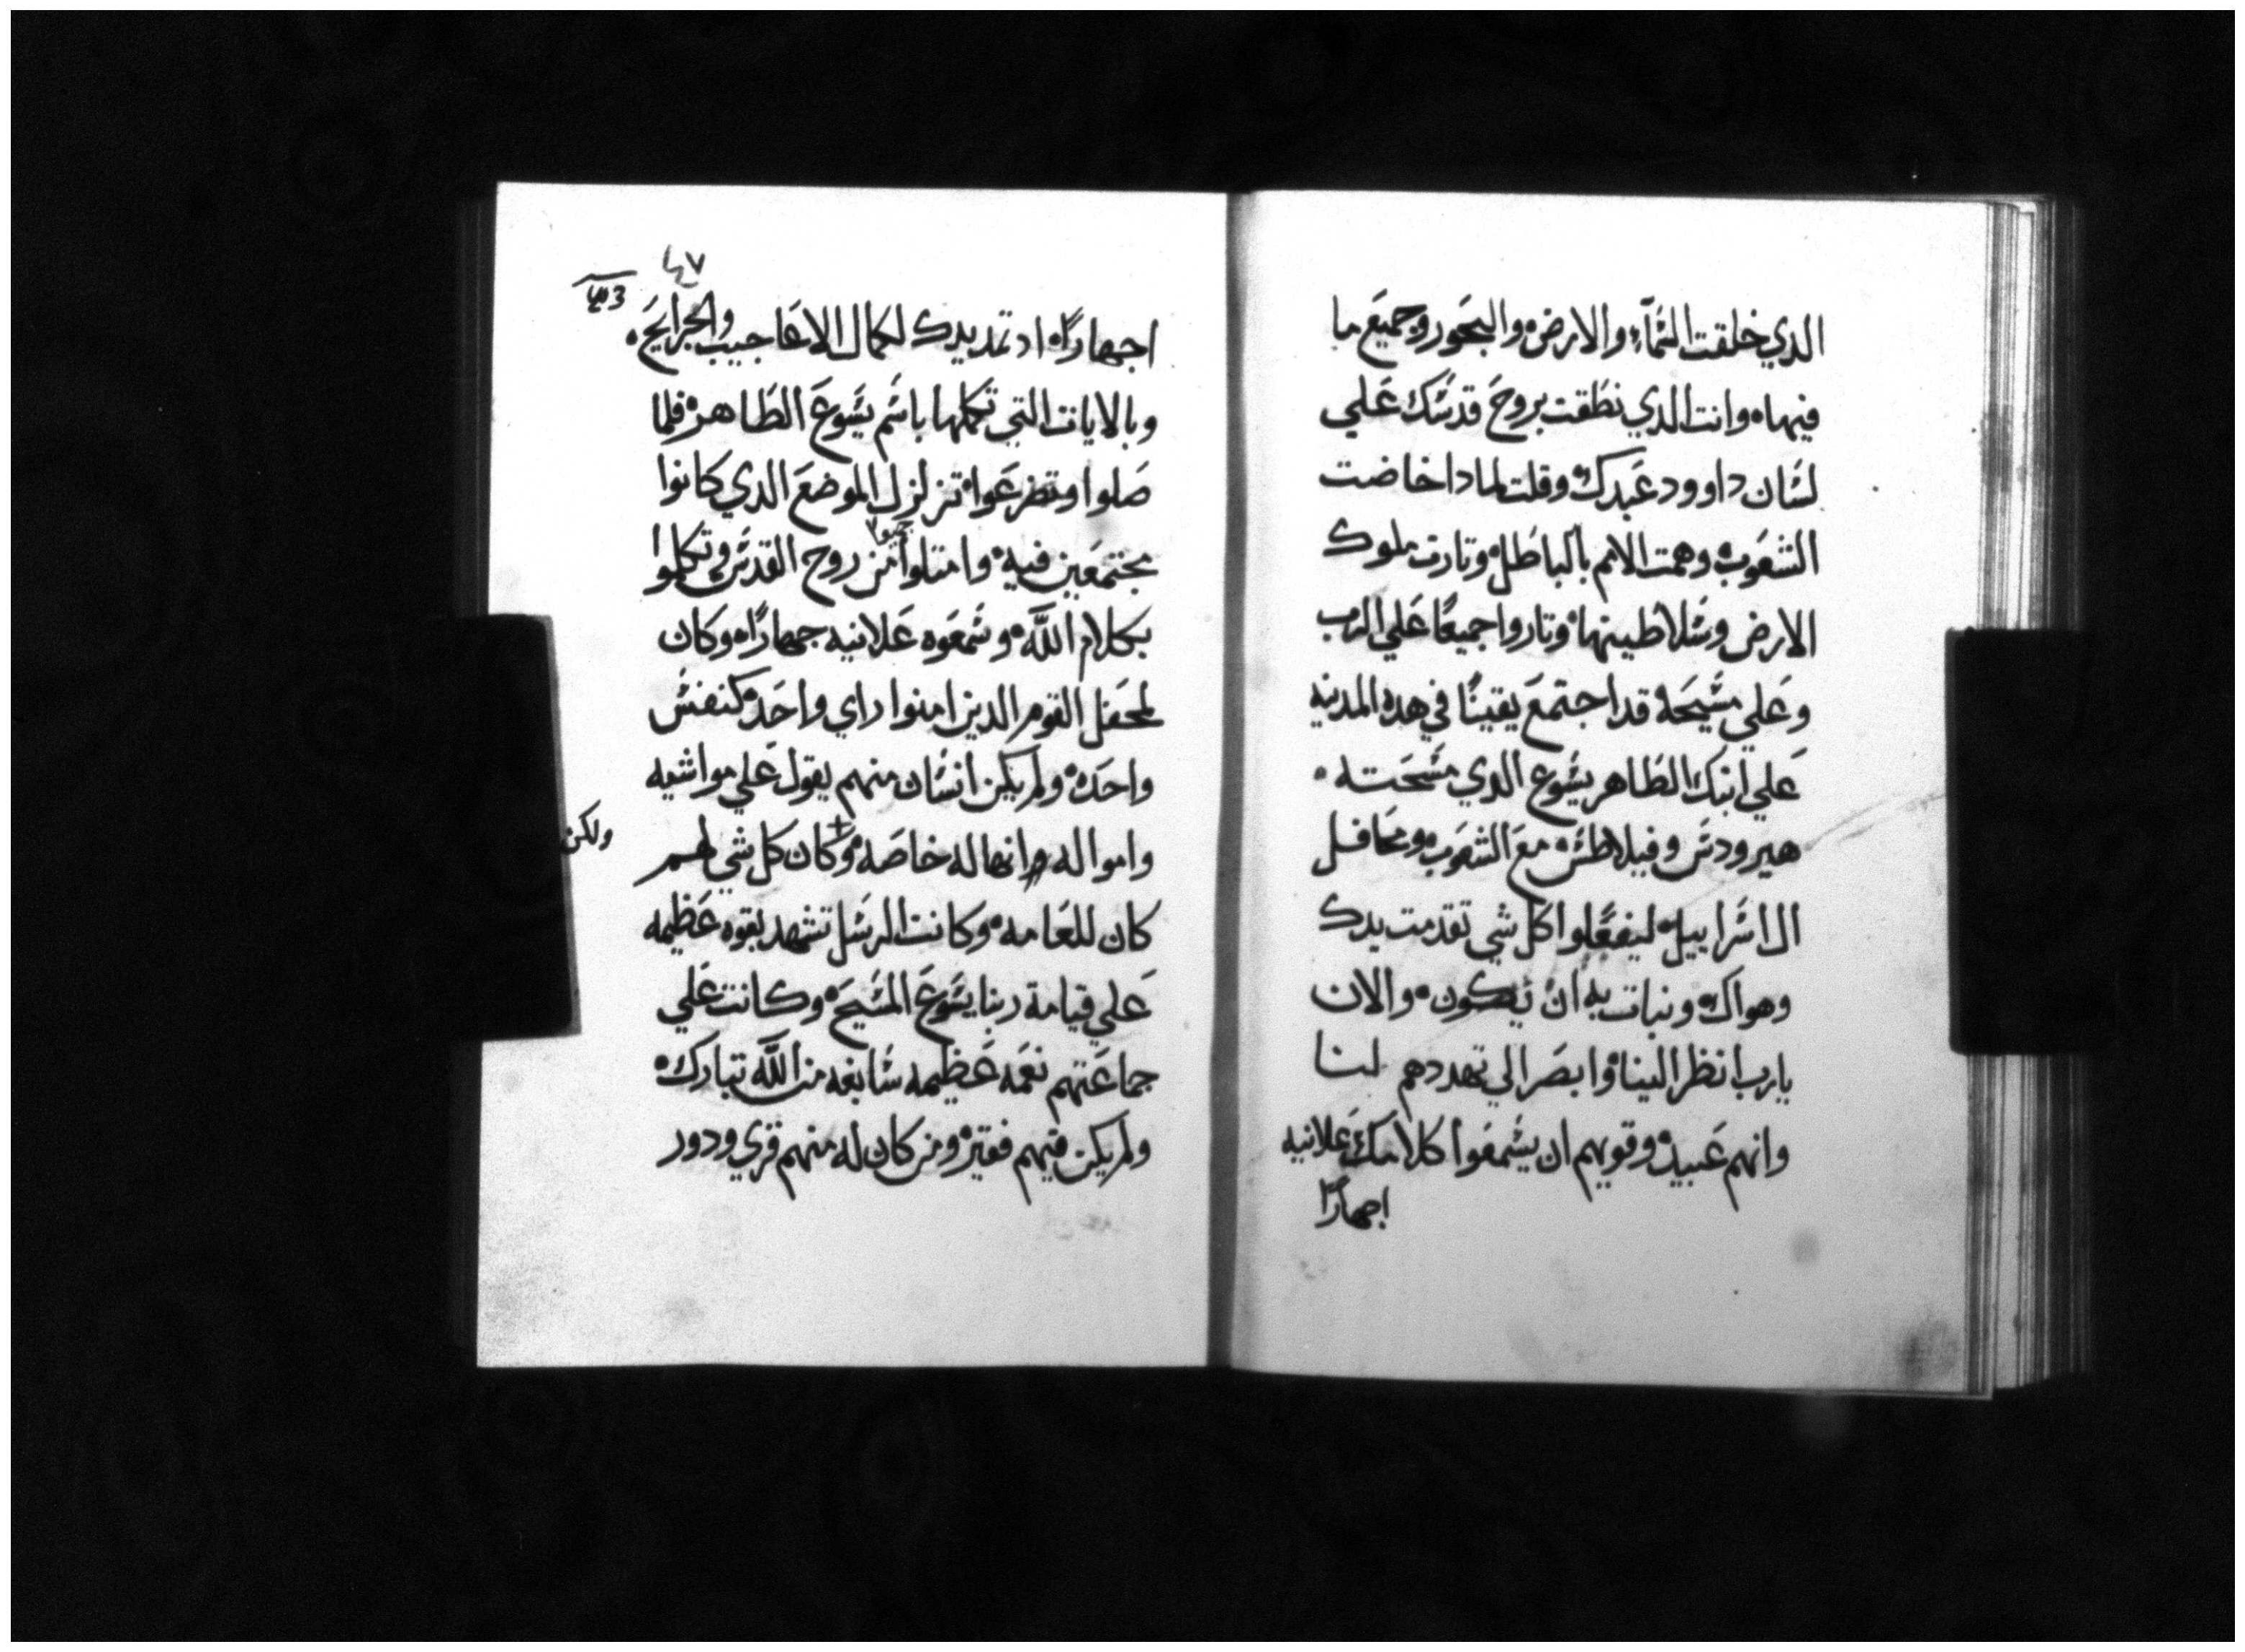 الدي خلقت السَمآء والارض والبحور وجميع ما
فيهاه وانت الدي نطقت بروح قدسَك عَلي
لسَان داوود عَبدك وقلت لمادا خاضت
الشعَوب وهمت الامم بالباطل وتارت ملوك
الارض وسَلاطينها وتاروا جميعًا عَلي الرب
وعَلي مسَيحَه قد اجتمعَ يقينًا في هده المدينه
عَلي ابنك الطاهر يسَوع الدي مسَحَته ه
هيرودسَ وفيلاطسَ معَ الشعَوب ومحَافل
ال اسَراييل ليفعَلوا كل شي تقدمت يدك
وهواك ونبات به ان يكون ه والان
يارب انظر الينا وابصَر الي تهددهم لنا
وانهم عَبيدك وقويهم ان يسَمعَوا كلامك عَلانيه
اجهارًا
٤٧
اجهارًاه اد تمد يدك لكمال الاعَاجيب والجرايحَ ه
وبالايات التي تكملها باسَم يسَوعَ الطاهر فلما
صَلوا وتضرعَوا تزلزل الموضعَ الدي كانوا
مجتمعَين فيه وامتلوا جميعا من روح القدسَ وتكلموا
بكلام اللّه وسَمعَوه عَلانيه جهارًاه وكان
لمحفل القوم الدين امنوا راي واحَد كنفسَ
واحَده ولم يكن انسَان منهم يقول عَلي مواشيه
وامواله انها له خاصَه وكان كل شي لهم
ولكن
كان للعَامه وكانت الرسَل تشهد بقوه عَظيمه
عَلي قيامة ربنا يسَوعَ المسَيحَ وكانت عَلي
جماعَتهم نعَمه عَظيمه سَابغه من اللّه تبارك
ولم يكن فيهم فقير ومن كان له منهم قري ودور